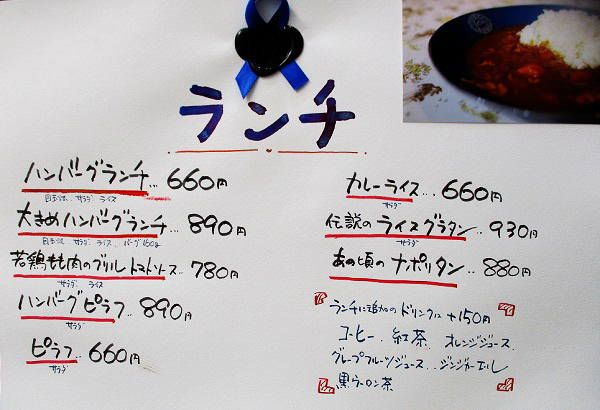 ランチ
ハンバーグランチ… 660円
目玉焼 サラダ ライス
大きめハンバーグランチ… 890円
目玉焼 サラダ ライス バーグ160g
若鶏もも肉のグリルトマトソース… 780円
サラダ ライス
ハンバーグピラフ… 890円
サラダ
ピラフ… 660円
サラダ
カレーライス… 660円
サラダ
伝説のライスグラタン… 930円
サラダ
あの頃のナポリタン… 880円
ランチに追加のドリンクは +150円
コーヒー. 紅茶. オレンジジュース.
グレープフルーツジュース.. ジンジャーエール
黒ウーロン茶